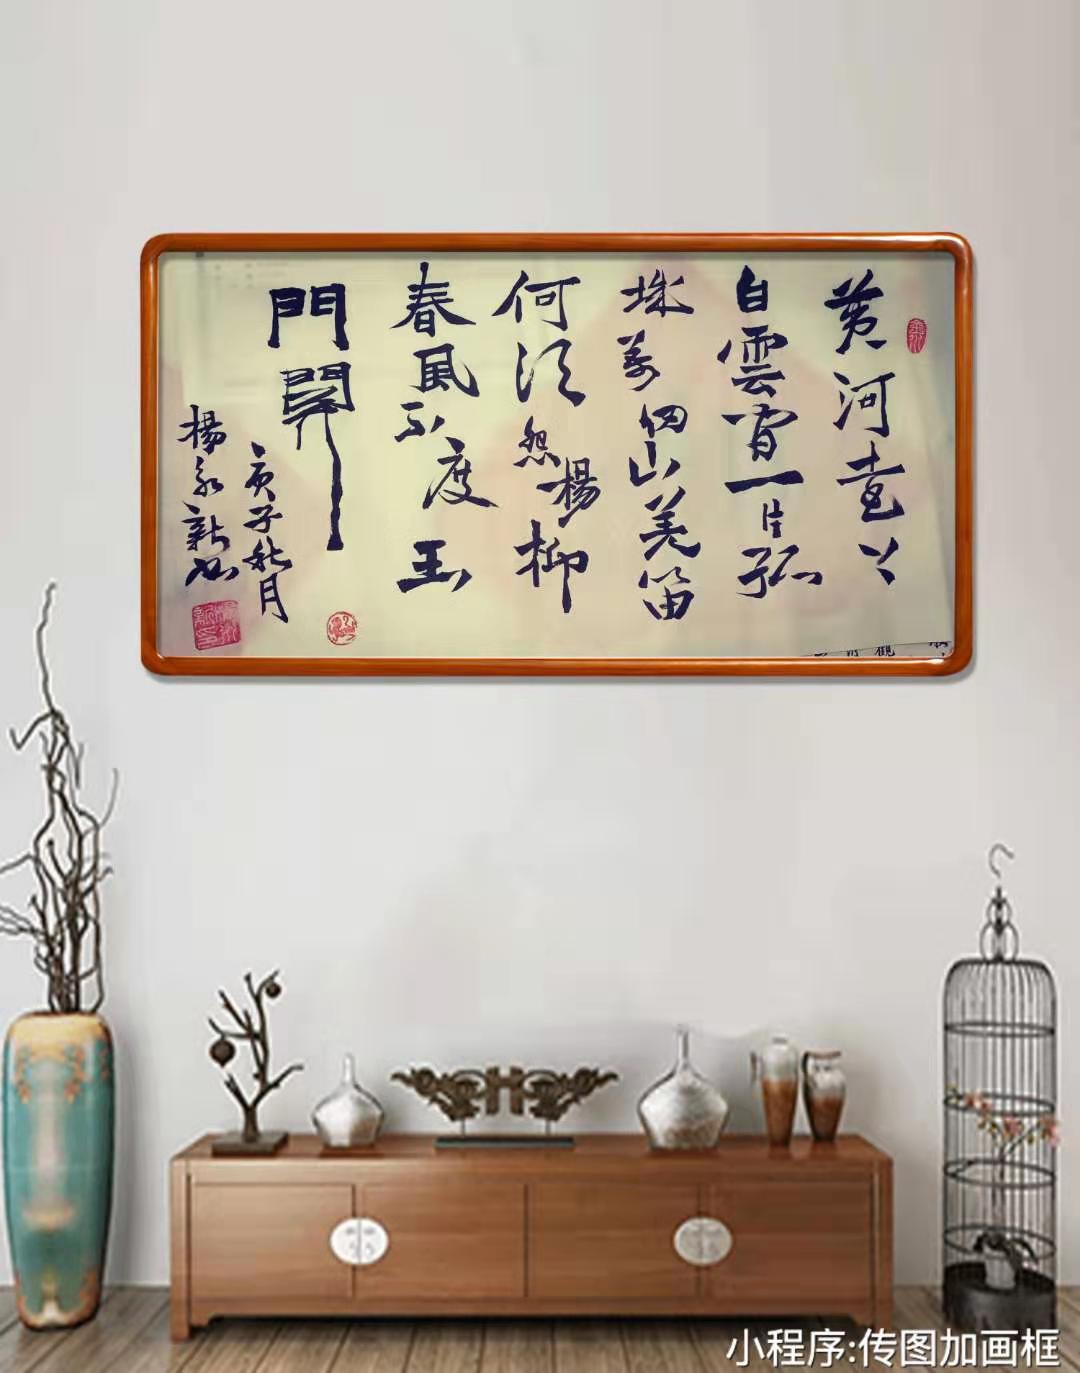 黄河遠上
白雲間一片孤
城萬仞山羌笛
何須怨楊柳
春風不度玉
門關
庚子秋月
楊永新書
觀
小程序:传图加画框